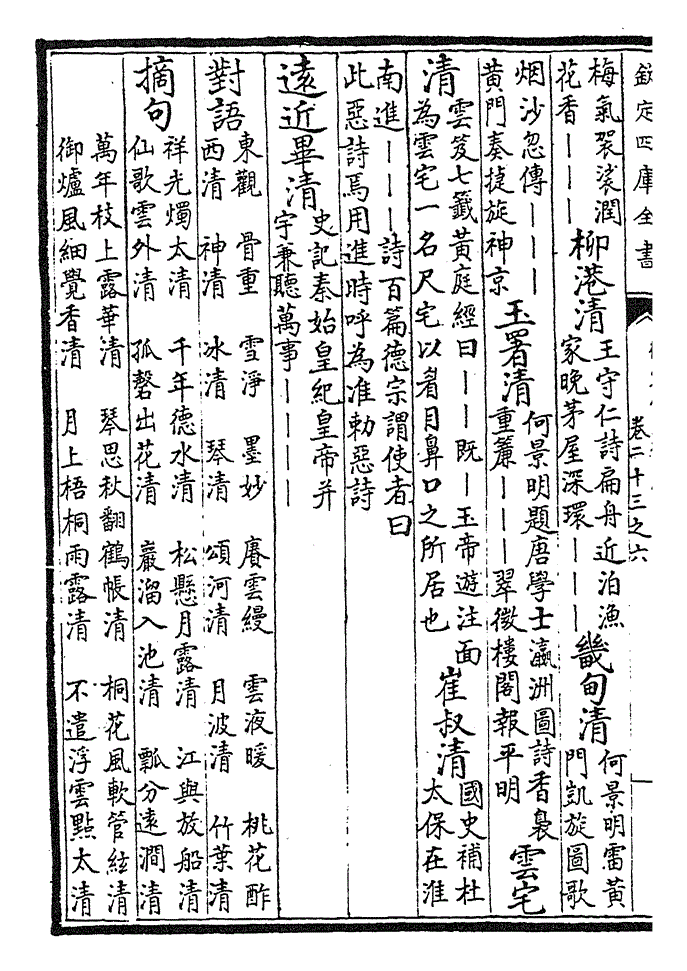 欽定四庫全書
卷二十三之六
梅氣袈裟潤
花香｜｜｜
柳港清
王守仁詩扁舟近泊漁
家晚茅屋深環｜｜｜
畿甸清
何景明雷黄
門凱旋圖歌
烟沙忽傳｜｜｜
黄門奏捷旋神京
玉署清
何景明題唐學士瀛洲圖詩香裊
重簾｜｜｜翠微樓閣報平明
雲宅
清
雲笈七籖黄庭經曰｜｜既｜玉帝遊注面
為雲宅一名尺宅以眉目鼻口之所居也
崔叔清
國史補杜
太保在淮
南進｜｜｜詩百篇德宗謂使者曰
此惡詩焉用進時呼為准勅惡詩
遠近畢清
史記秦始皇紀皇帝并
宇兼聽萬事｜｜｜｜
對語
東觀 骨重 雪淨 墨妙 賡雲縵 雲液暖 桃花酢
西清 神清 冰清 琴清 頌河清 月波清 竹葉清
摘句
祥光燭太清 千年德水清 松懸月露清 江與放船清
仙歌雲外清 孤磬出花清 巖溜入池清 瓢分遠澗清
萬年枝上露華清 琴思秋翻鶴帳清 桐花風軟管絃清
御爐風細覺香清 月上梧桐雨露清 不遣浮雲點太清